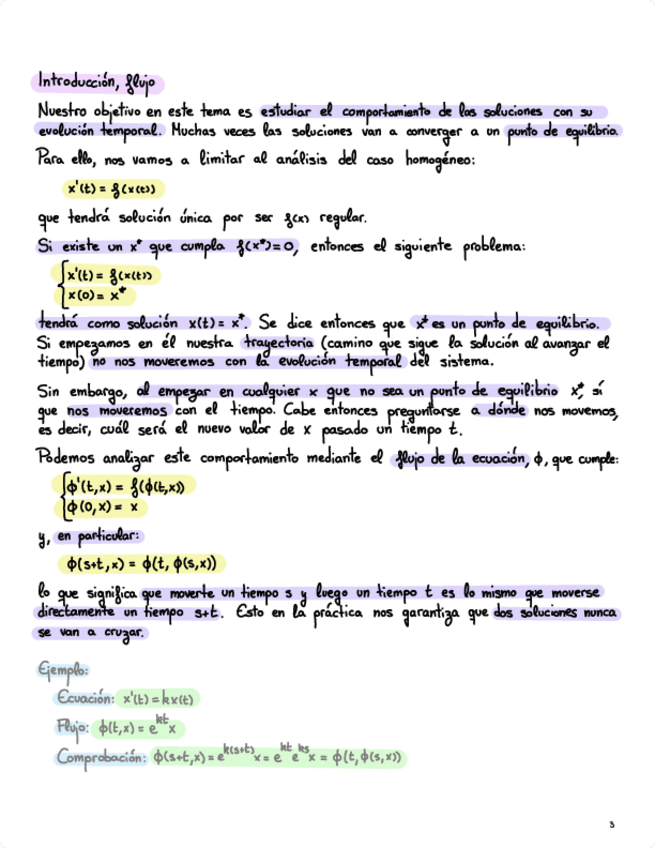 Introducción, flujo
Nuestro objetivo en este tema es estudiar el comportamiento de las soluciones con su
evolución temporal. Muchas veces las soluciones van a converger a un punto de equilibrio.
Para ello, nos vamos a limitar al análisis del caso homogéneo:
x'(t) = f(x(t))
que tendrá solución única por ser f(x) regular.
Si existe un x* que cumpla f(x*)=0, entonces el siguiente problema:
x'(t) = f(x(t))
x(0) = x*
tendrá como solución x(t) = x*. Se dice entonces que x* es un punto de equilibrio.
Si empezamos en él nuestra trayectoria (camino que sigue la solución al avanzar el
tiempo) no nos moveremos con la evolución temporal del sistema.
Sin embargo, al empezar en cualquier x que no sea un punto de equilibrio x*, sí
que nos moveremos con el tiempo. Cabe entonces preguntarse a dónde nos movemos,
es decir, cuál será el nuevo valor de x pasado un tiempo t.
Podemos analizar este comportamiento mediante el flujo de la ecuación, ϕ, que cumple:
ϕ'(t,x) = f(ϕ(t,x))
ϕ(0,x) = x
y, en particular:
ϕ(s+t,x) = ϕ(t, ϕ(s,x))
lo que significa que moverte un tiempo s y luego un tiempo t es lo mismo que moverse
directamente un tiempo s+t. Esto en la práctica nos garantiza que dos soluciones nunca
se van a cruzar.
Ejemplo:
Ecuación: x'(t) = kx(t)
Flujo: ϕ(t,x) = e^{kt} x
Comprobación: ϕ(s+t,x) = e^{k(s+t)} x = e^{kt} e^{ks} x = ϕ(t,ϕ(s,x))
3